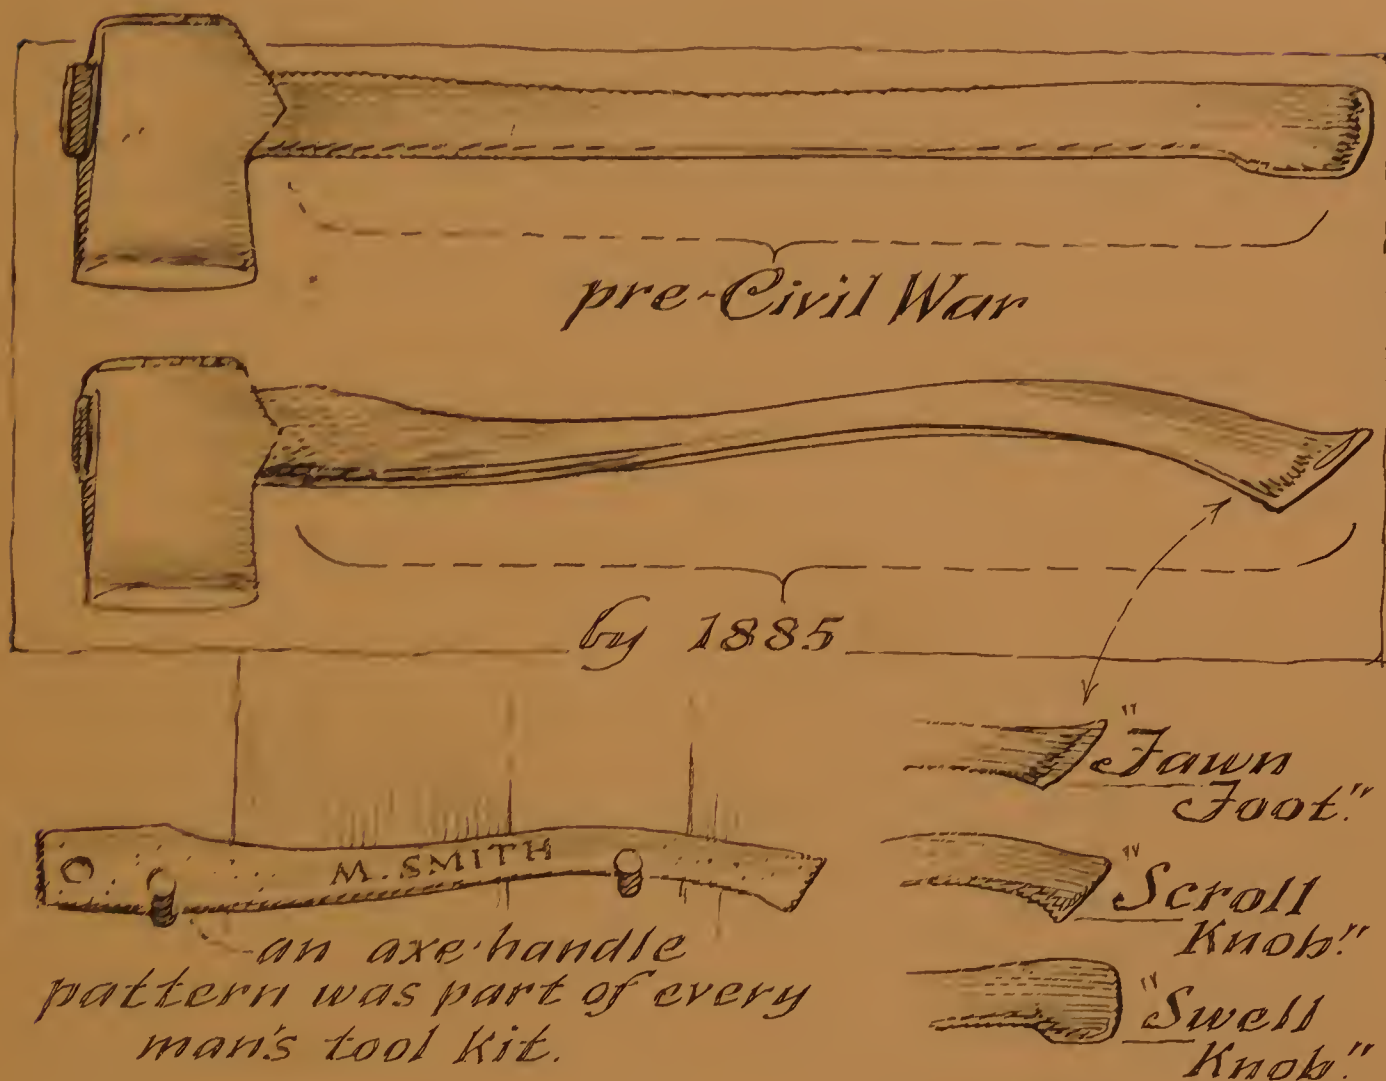 pre-Civil War
by 1885
M. SMITH
an axe-handle
pattern was part of every
man's tool kit.
"Fawn
Foot."
"Scroll
Knob."
"Swell
Knob."